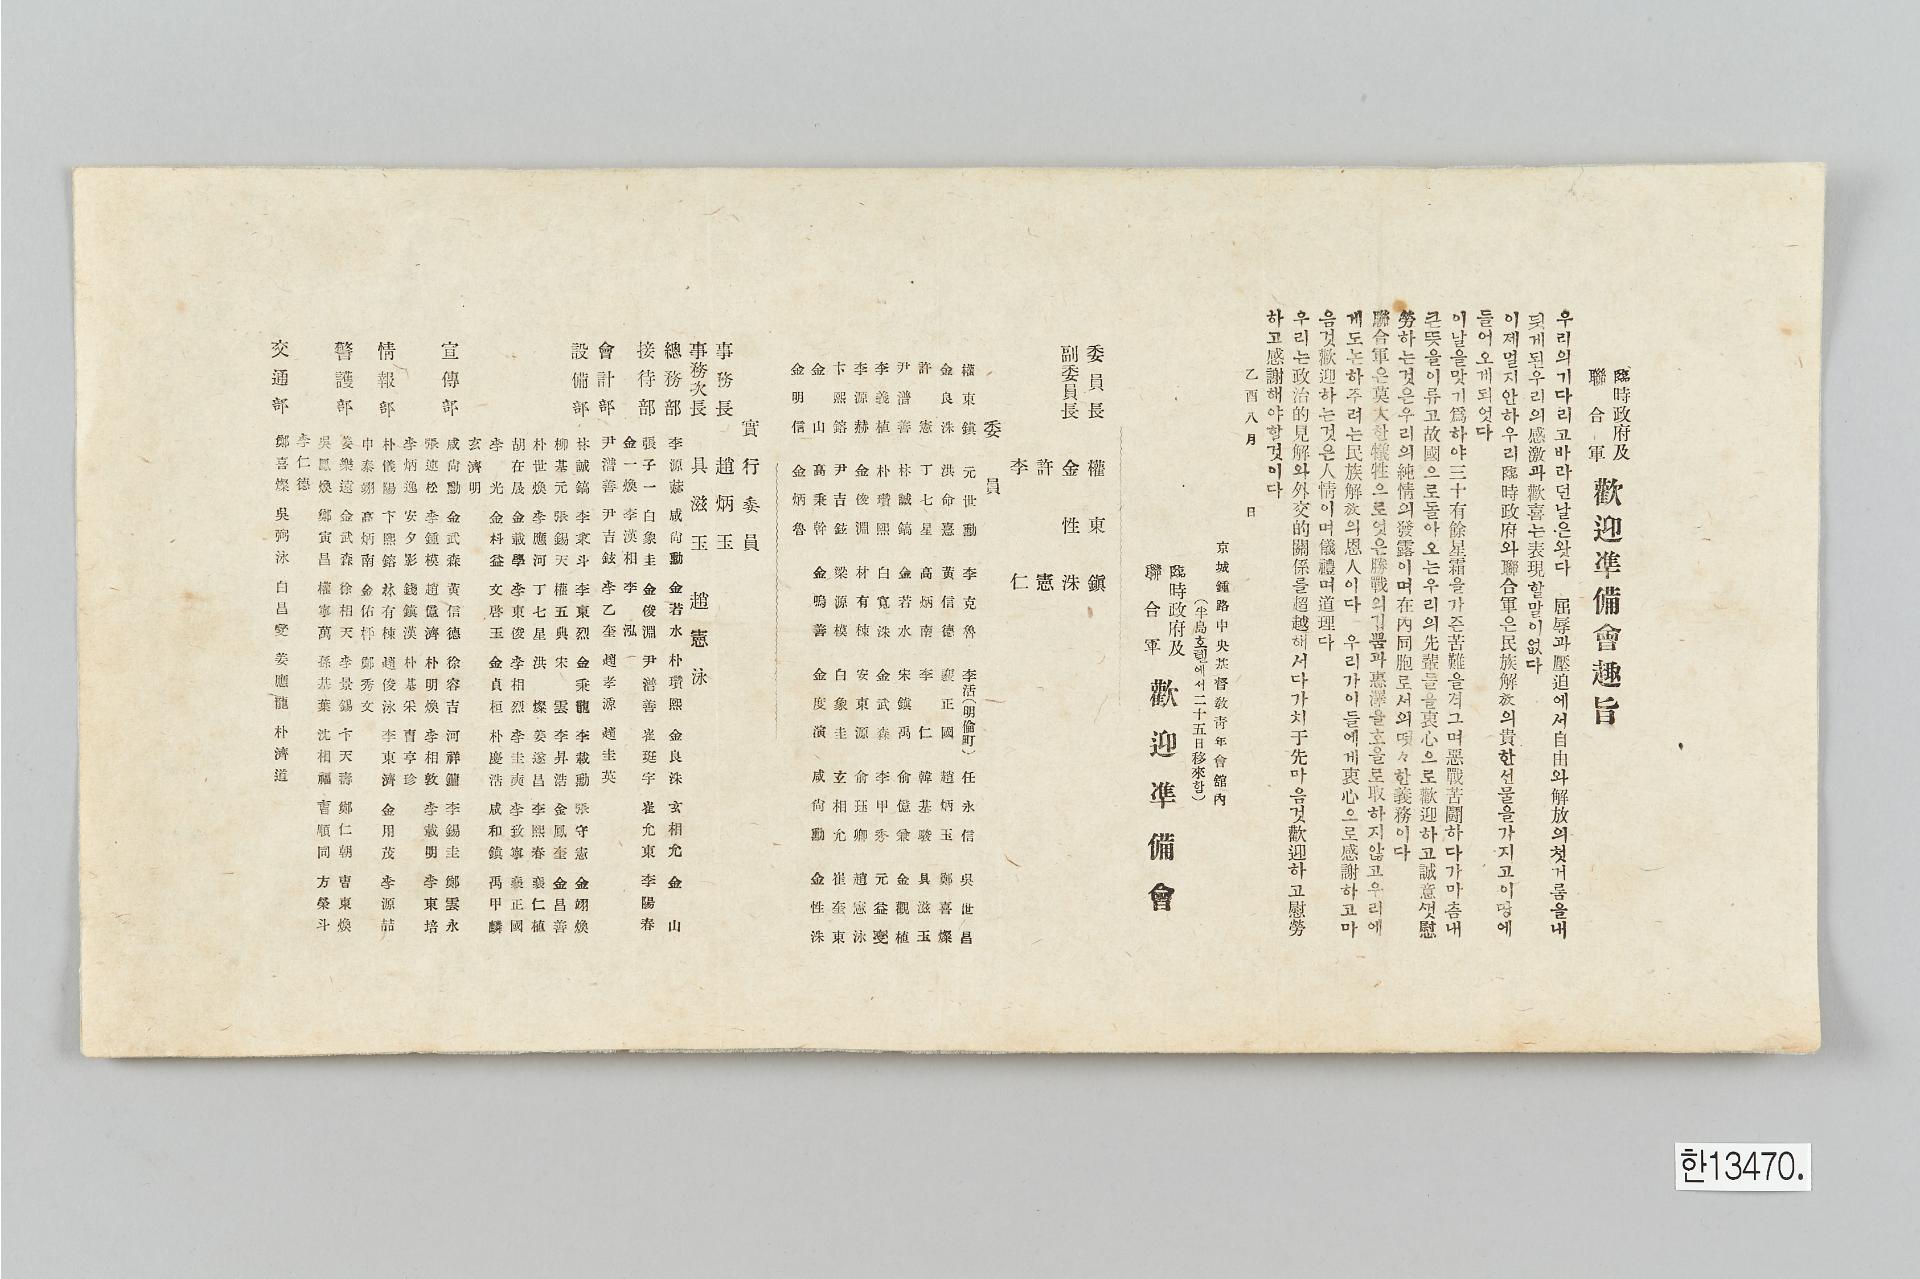 臨時政府及
聯合軍 歡迎準備會趣旨
우리의기다리고바라던날은왓다 屈辱과壓迫에서自由와解放의첫거름을내
딋게된우리의感激과歡喜는表現할말이없다
이제멀지안하우리臨時政府와聯合軍은民族解放의貴한선물을가지고이땅에
들어오게되엇다
이날을맞기爲하야三十有餘星霜을가즌苦難을격그며惡戰苦鬪하다가마츰내
큰뜻을이류고故國으로돌아오는우리의先輩들을衷心으로歡迎하고誠意껏慰
勞하는것은우리의純情의發露이며在內同胞로서의떳々한義務이다
聯合軍은莫大한犧牲으로엇은勝戰의깁쁨과惠澤을호을로取하지않고우리에
게도논하주려는民族解放의恩人이다 우리가이들에게衷心으로感謝하고마
음것歡迎하는것은人情이며儀禮며道理다
우리는政治的見解와外交的關係를超越해서다가치于先마음것歡迎하고慰勞
하고感謝해야할것이다
乙酉八月 日
京城鍾路中央基督敎靑年會舘內
(半島호텔에서二十五日移來함)
臨時政府及
聯合軍 歡迎準備會
委員長 權東鎭
副委員長 金性洙
許憲
李仁
委員
權東鎭 元世勳 李克魯 李活(明倫町) 任永信 吳世昌
金良洙 洪命憙 黃信德 襄正國 趙炳玉 鄭喜燦
許憲 丁七星 高炳南 李仁 韓基駿 具滋玉
尹潽善 林誠鎬 金若水 宋鎭禹 兪億兼 金觀植
李義植 朴瓚熙 白寬洙 金武森 李甲秀 元益燮
李源赫 金俊淵 林有棟 安東源 兪珏卿 趙憲泳
卞熙鎔 尹吉鉉 梁源模 白象圭 玄相允 崔奎東
金山 高秉幹 金鳴善 金度演 咸尙勳 金性洙
金明信 金炳魯
實行委員
事務長 趙炳玉
事務次長 具滋玉 趙憲泳
總務部 李源赫 咸尙勳 金若水 朴瓚熙 金良洙 玄相允 金山
接待部 張子一 白象圭 金俊淵 尹潽善 崔斑宇 崔允東 李陽春
金一煥 李漢相 李泓
會計部 尹潽善 尹吉鉉 李乙奎 趙孝源 趙圭英
設備部 林誠鎬 李求斗 李東烈 金乘龍 李載勳 張守憲 金翊煥
柳基元 張錫天 權五典 宋雲 李昇浩 金鳳奎 金昌善
朴世煥 李應河 丁七星 洪燦 姜遂昌 李熙春 襄仁植
胡在晟 金載學 李東俊 李相烈 李圭奭 李敎寧 襄正國
李光 金科益 文啓玉 金貞桓 朴慶浩 咸和鎭 禹甲麟
玄濟明
宣傳部 咸尙勳 金武森 黃信德 徐容吉 河祥鏞 李錫圭 鄭雲永
張連松 李鍾模 趙儘濟 朴明煥 李相敦 李載明 李東培
李炳逸 安夕影 錢鎭漢 朴基采 曺亨珍
情報部 朴儀陽 卞熙鎔 林有棟 趙俊泳 李東濟 金用茂 李源喆
申泰翊 高炳南 金佑枰 鄭秀文
警護部 姜樂遠 金武森 徐相天 李景錫 卞天壽 鄭仁朝 曺東煥
吳鳳煥 鄭寅昌 權寧萬 孫基葉 沈相福 曺順同 方榮斗
李仁德
交通部 鄭喜燦 吳弼泳 白昌燮 姜應龍 朴濟道
한13470.